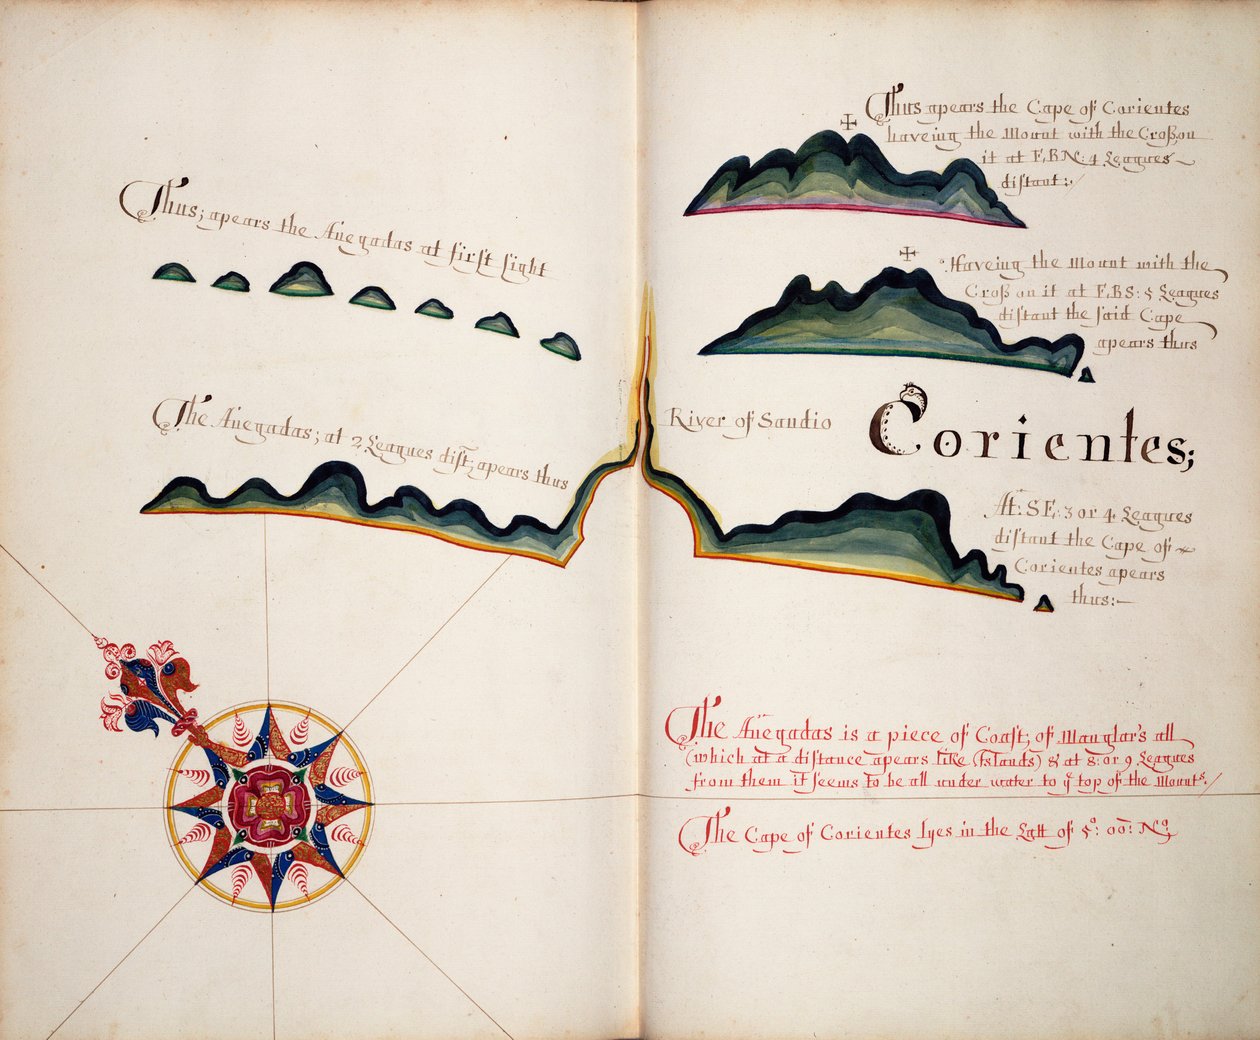 Thus; apears the Anegadas at first sight
The Anegadas; at 2 Leagues dist; apears thus
Thus apears the Cape of Corientes
haveing the Mount with the Cross on
it at EBN: 4 Leagues
distant:
Haveing the Mount with the
Cross on it at EBS: 5 Leagues
distant the said Cape
apears thus
River of Sandio
Corientes;
At: SE: 3 or 4 Leagues
distant the Cape of
Corientes apears
thus:
The Anegadas is a piece of Coast; of Manglar's all
(which at a distance apears like Islands) & at 8: or 9 Leagues
from them it seems to be all under water to yᵉ top of the Mountˢ.
The Cape of Corientes lyes in the Latt of 5°: 00: Nº